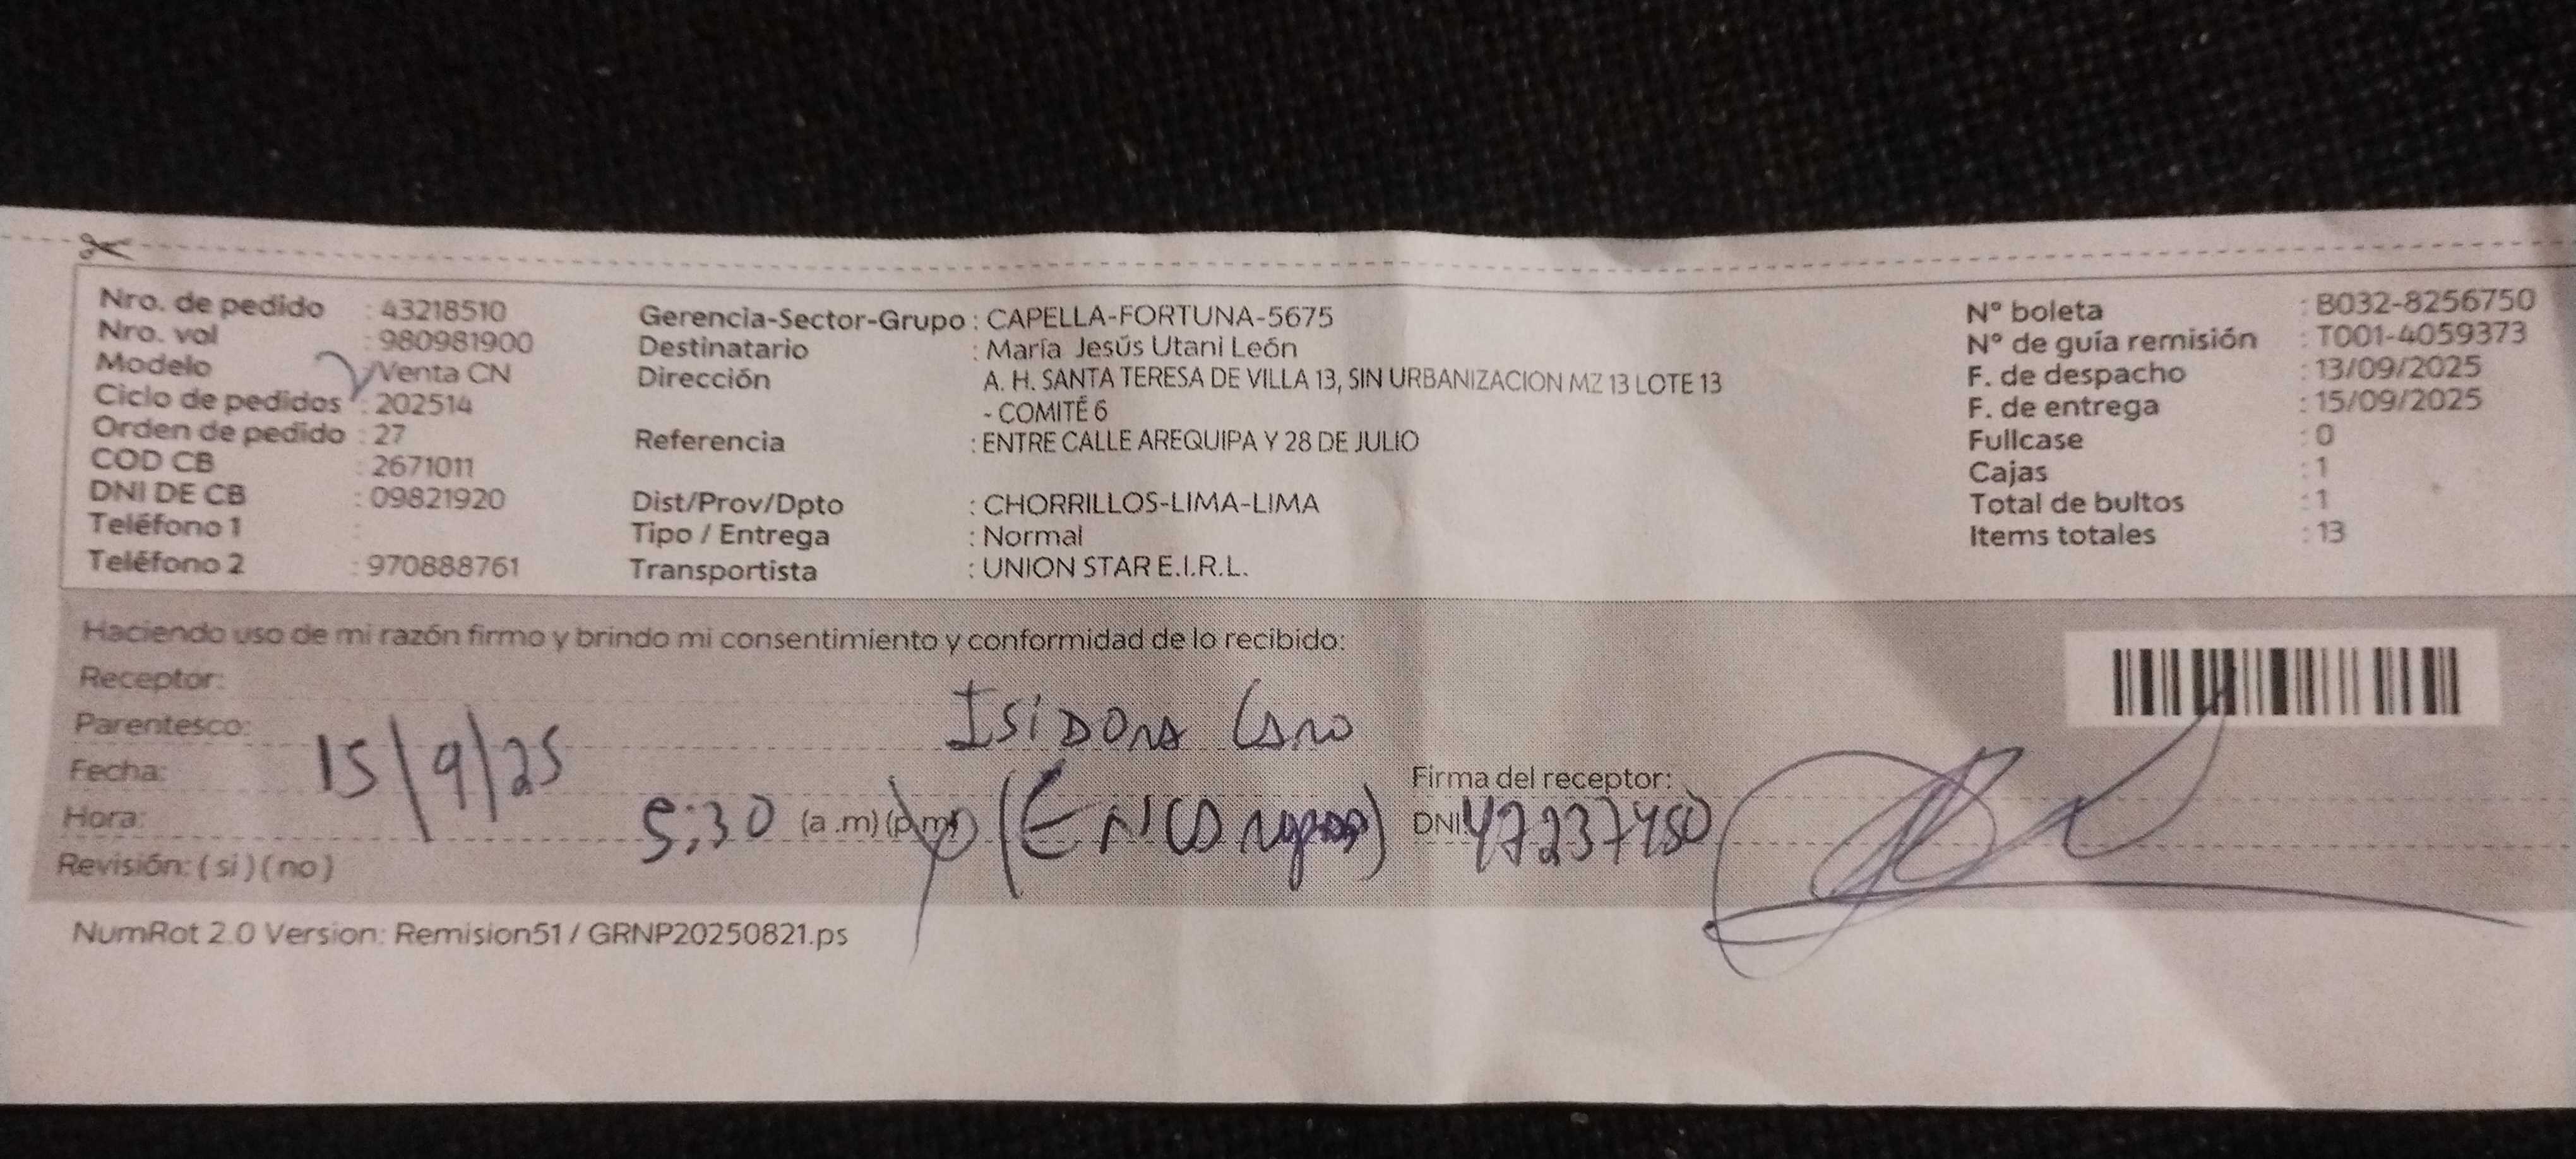 Nro. de pedido : 43218510
Nro. vol : 980981900
Modelo : Venta CN
Ciclo de pedidos : 202514
Orden de pedido : 27
COD CB : 2671011
DNI DE CB : 09821920
Teléfono 1 :
Teléfono 2 : 970888761
Gerencia-Sector-Grupo : CAPELLA-FORTUNA-5675
Destinatario : María Jesús Utani León
Dirección : A. H. SANTA TERESA DE VILLA 13, SIN URBANIZACION MZ 13 LOTE 13
- COMITÉ 6
Referencia : ENTRE CALLE AREQUIPA Y 28 DE JULIO
Dist/Prov/Dpto : CHORRILLOS-LIMA-LIMA
Tipo / Entrega : Normal
Transportista : UNION STAR E.I.R.L.
Nº boleta : B032-8256750
Nº de guía remisión : T001-4059373
F. de despacho : 13/09/2025
F. de entrega : 15/09/2025
Fullcase : 0
Cajas : 1
Total de bultos : 1
Items totales : 13
Haciendo uso de mi razón firmo y brindo mi consentimiento y conformidad de lo recibido:
Receptor:
Parentesco: Isidora Caro
Fecha: 15/9/25
Firma del receptor:
Hora: 5:30 (a .m) (p.m)
DNI: 47237450
Revisión: ( si ) ( no )
NumRot 2.0 Version: Remision51 / GRNP20250821.ps